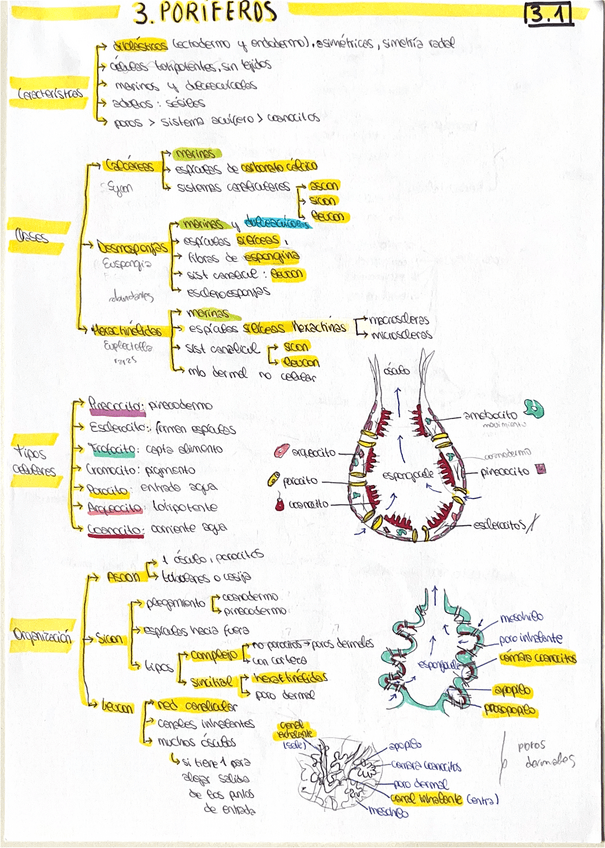 3. PORÍFEROS
3.1
Características
diblásticos (ectodermo y endodermo), asimétricos, simetría radial
células totipotentes, sin tejidos
marinos y dulceacuícolas
adultos: sésiles
poros > sistema acuífero > coanocitos
Clases
Calcáreas
Sycon
marinas
espículas de carbonato cálcico
sistemas canaliculares
ascon
sicon
leucon
Desmosponjas
Euspongia
marinas y dulceacuícolas
espículas silíceas
fibras de espongina
sist canalicul: leucon
escleroesponjas
Hexactinélidas
Euplectella
marinas
espículas silíceas Hexactinas
macroscleras
microscleras
sist canalicul
sicon
leucon
mb dermal no celular
Tipos celulares
Pinacocito: pinacodermo
Esclerocito: forman espículas
Trofocito: capta alimento
Cromocito: pigmento
Porocito: entrada agua
Arqeocito: totipotente
Coanocito: corriente agua
ósculo
amebocito
movimiento
arqeocito
coanodermo
porocito
espongiocele
pinacocito
coanocito
esclerocitos
Organización
Ascon
1 ósculo, porocitos
tubulares o vasija
sicon
plegamiento
coanodermo
pinacodermo
espículas hacia fuera
tipos
complejo
no porocitos → poros dermales
con corteza
sincitial
hexactinélidas
poro dermal
leucon
red canalicular
canales inhalantes
muchos ósculos
si tiene 1 para
alejar salida
de los puntos
de entrada
mesohilo
poro inhalante
cámara coanocitos
espongiocele
apopilo
prosopopilo
canal exhalante
(sale)
apopilo
cámara coanocitos
poro dermal
canal inhalante (entra)
mesohilo
poros
dermales